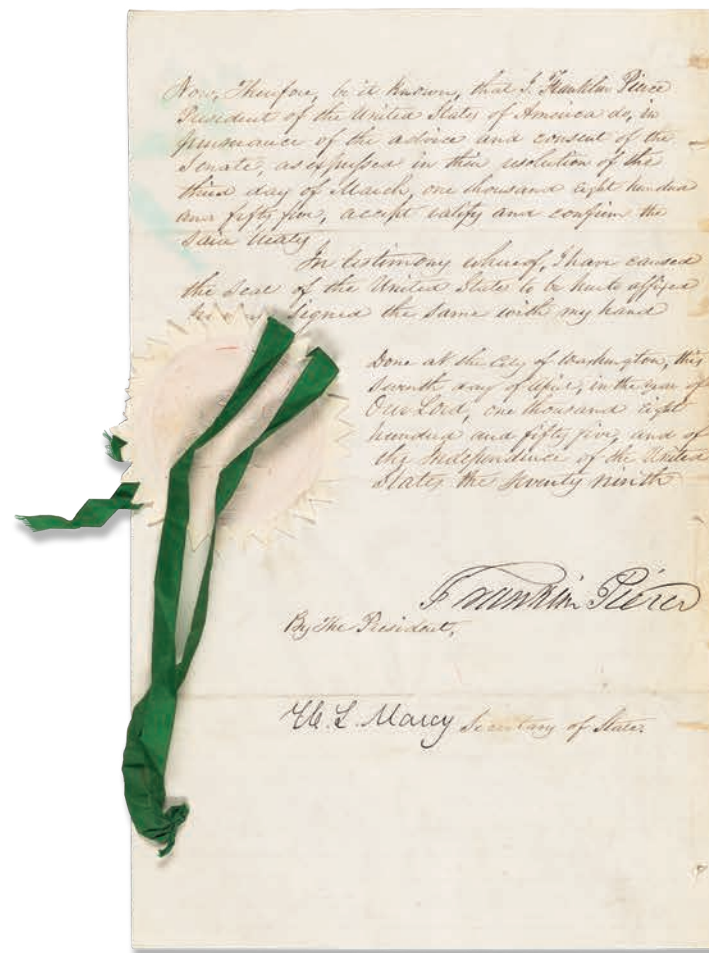 Now, Therefore, be it known, that I, Franklin Pierce
President of the United States of America do, in
pursuance of the advice and consent of the
Senate, as expressed in their resolution of the
third day of March, one thousand eight hundred
and fifty five, accept ratify and confirm the
said treaty
In testimony whereof, I have caused
the Seal of the United States to be hereto affixed
signed the same with my hand
Done at the City of Washington, this
Seventh day of April, in the year of
Our Lord, one thousand eight
hundred and fifty five, and of
the Independence of the United
States, the seventy ninth
Franklin Pierce
By the President,
W. L. Marcy Secretary of State.